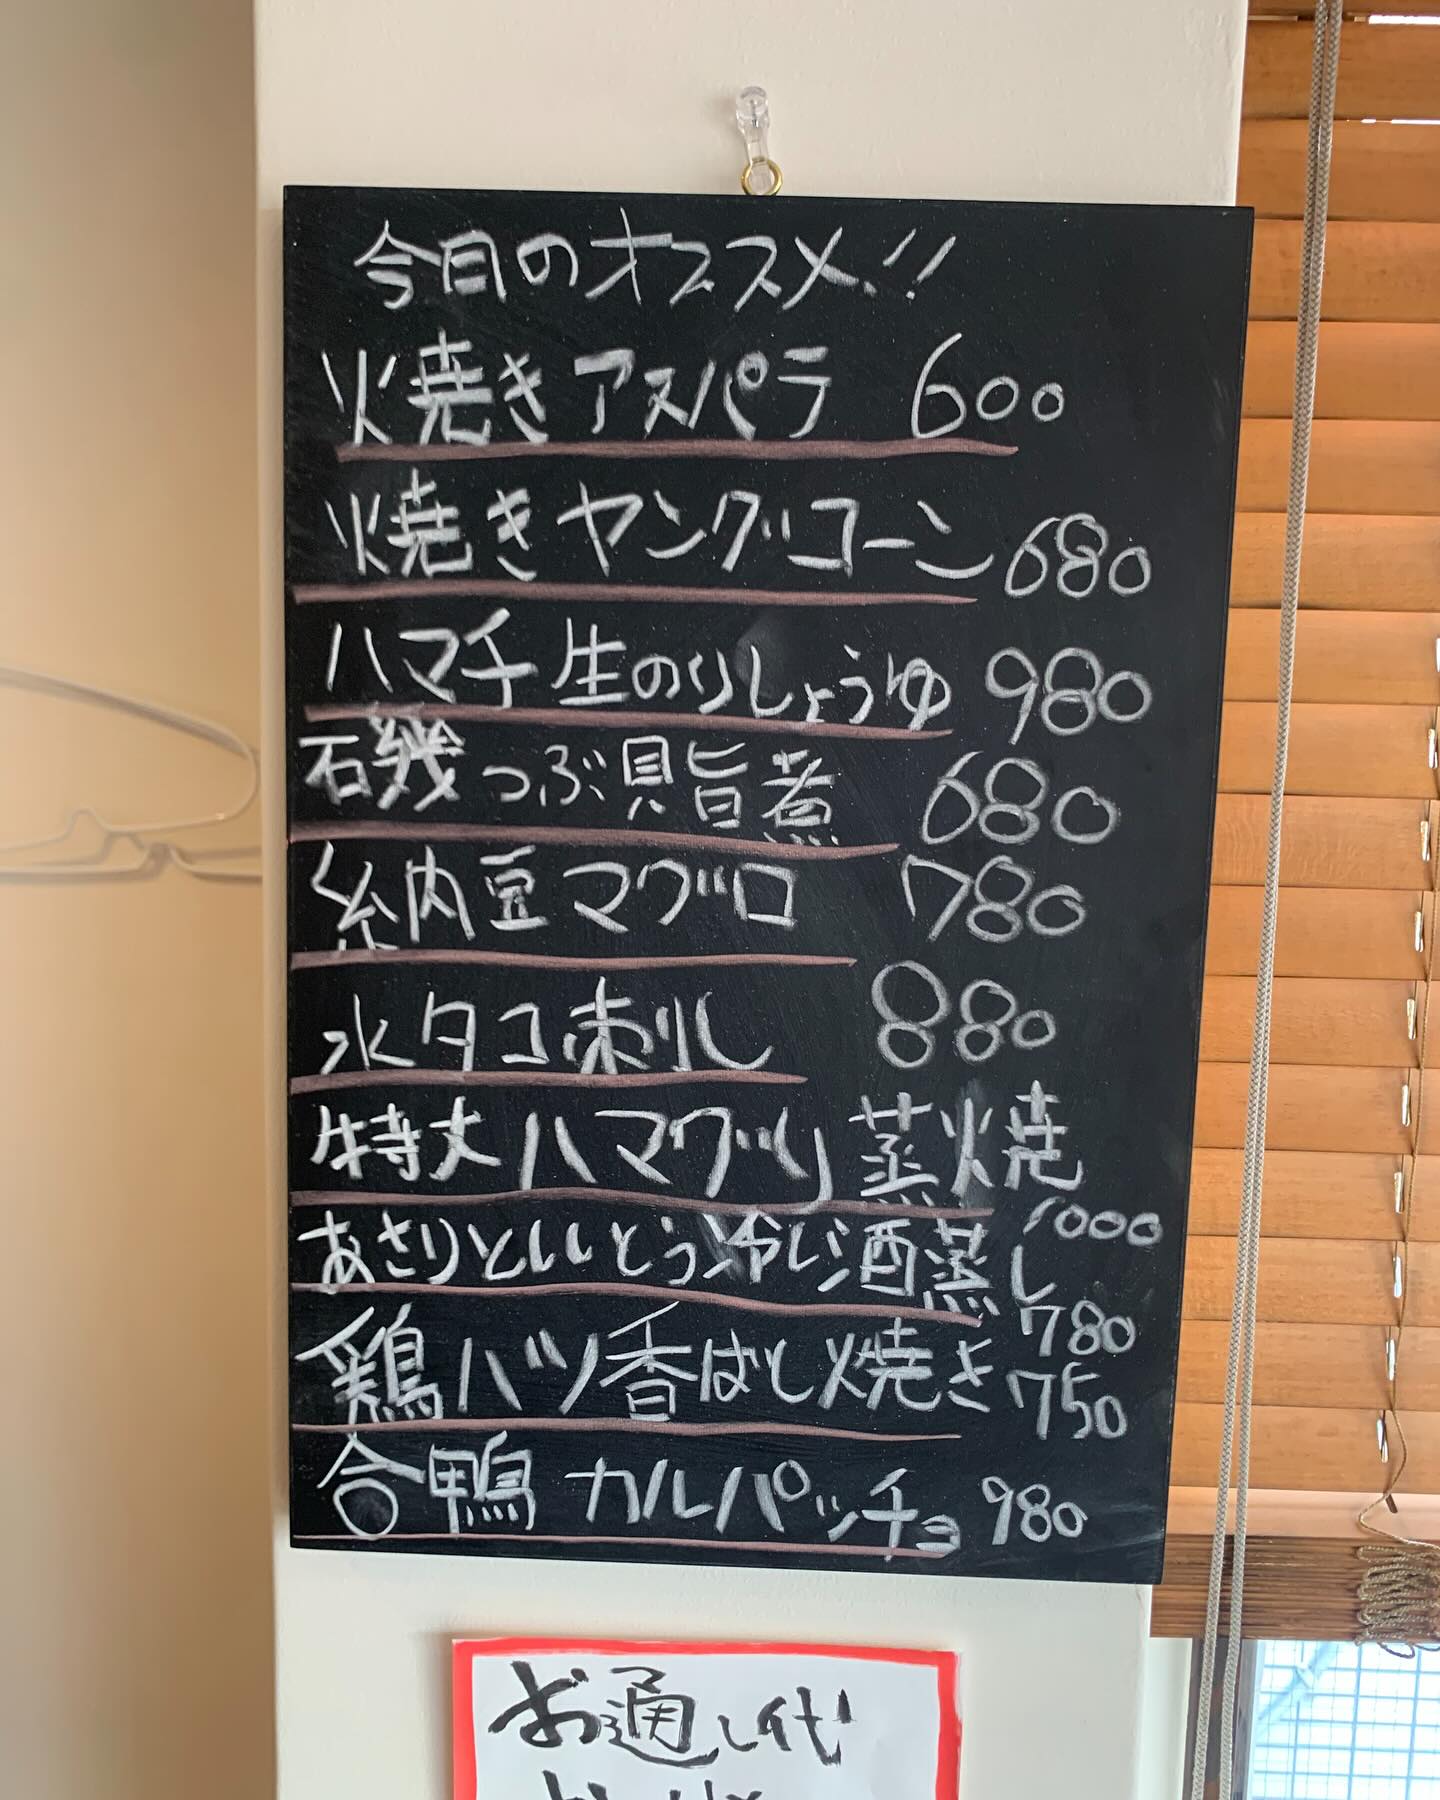 今日のオススメ!!
焼きアスパラ 600
焼きヤングコーン 680
ハマチ生のりしょうゆ 980
磯つぶ貝旨煮 680
納豆マグロ 780
水タコ刺し 880
特大ハマグリ 蒸焼
1000
あさりといとう冷し酒蒸し
780
鶏ハツ香ばし焼き 750
合鴨 カルパッチョ 980
お通し代